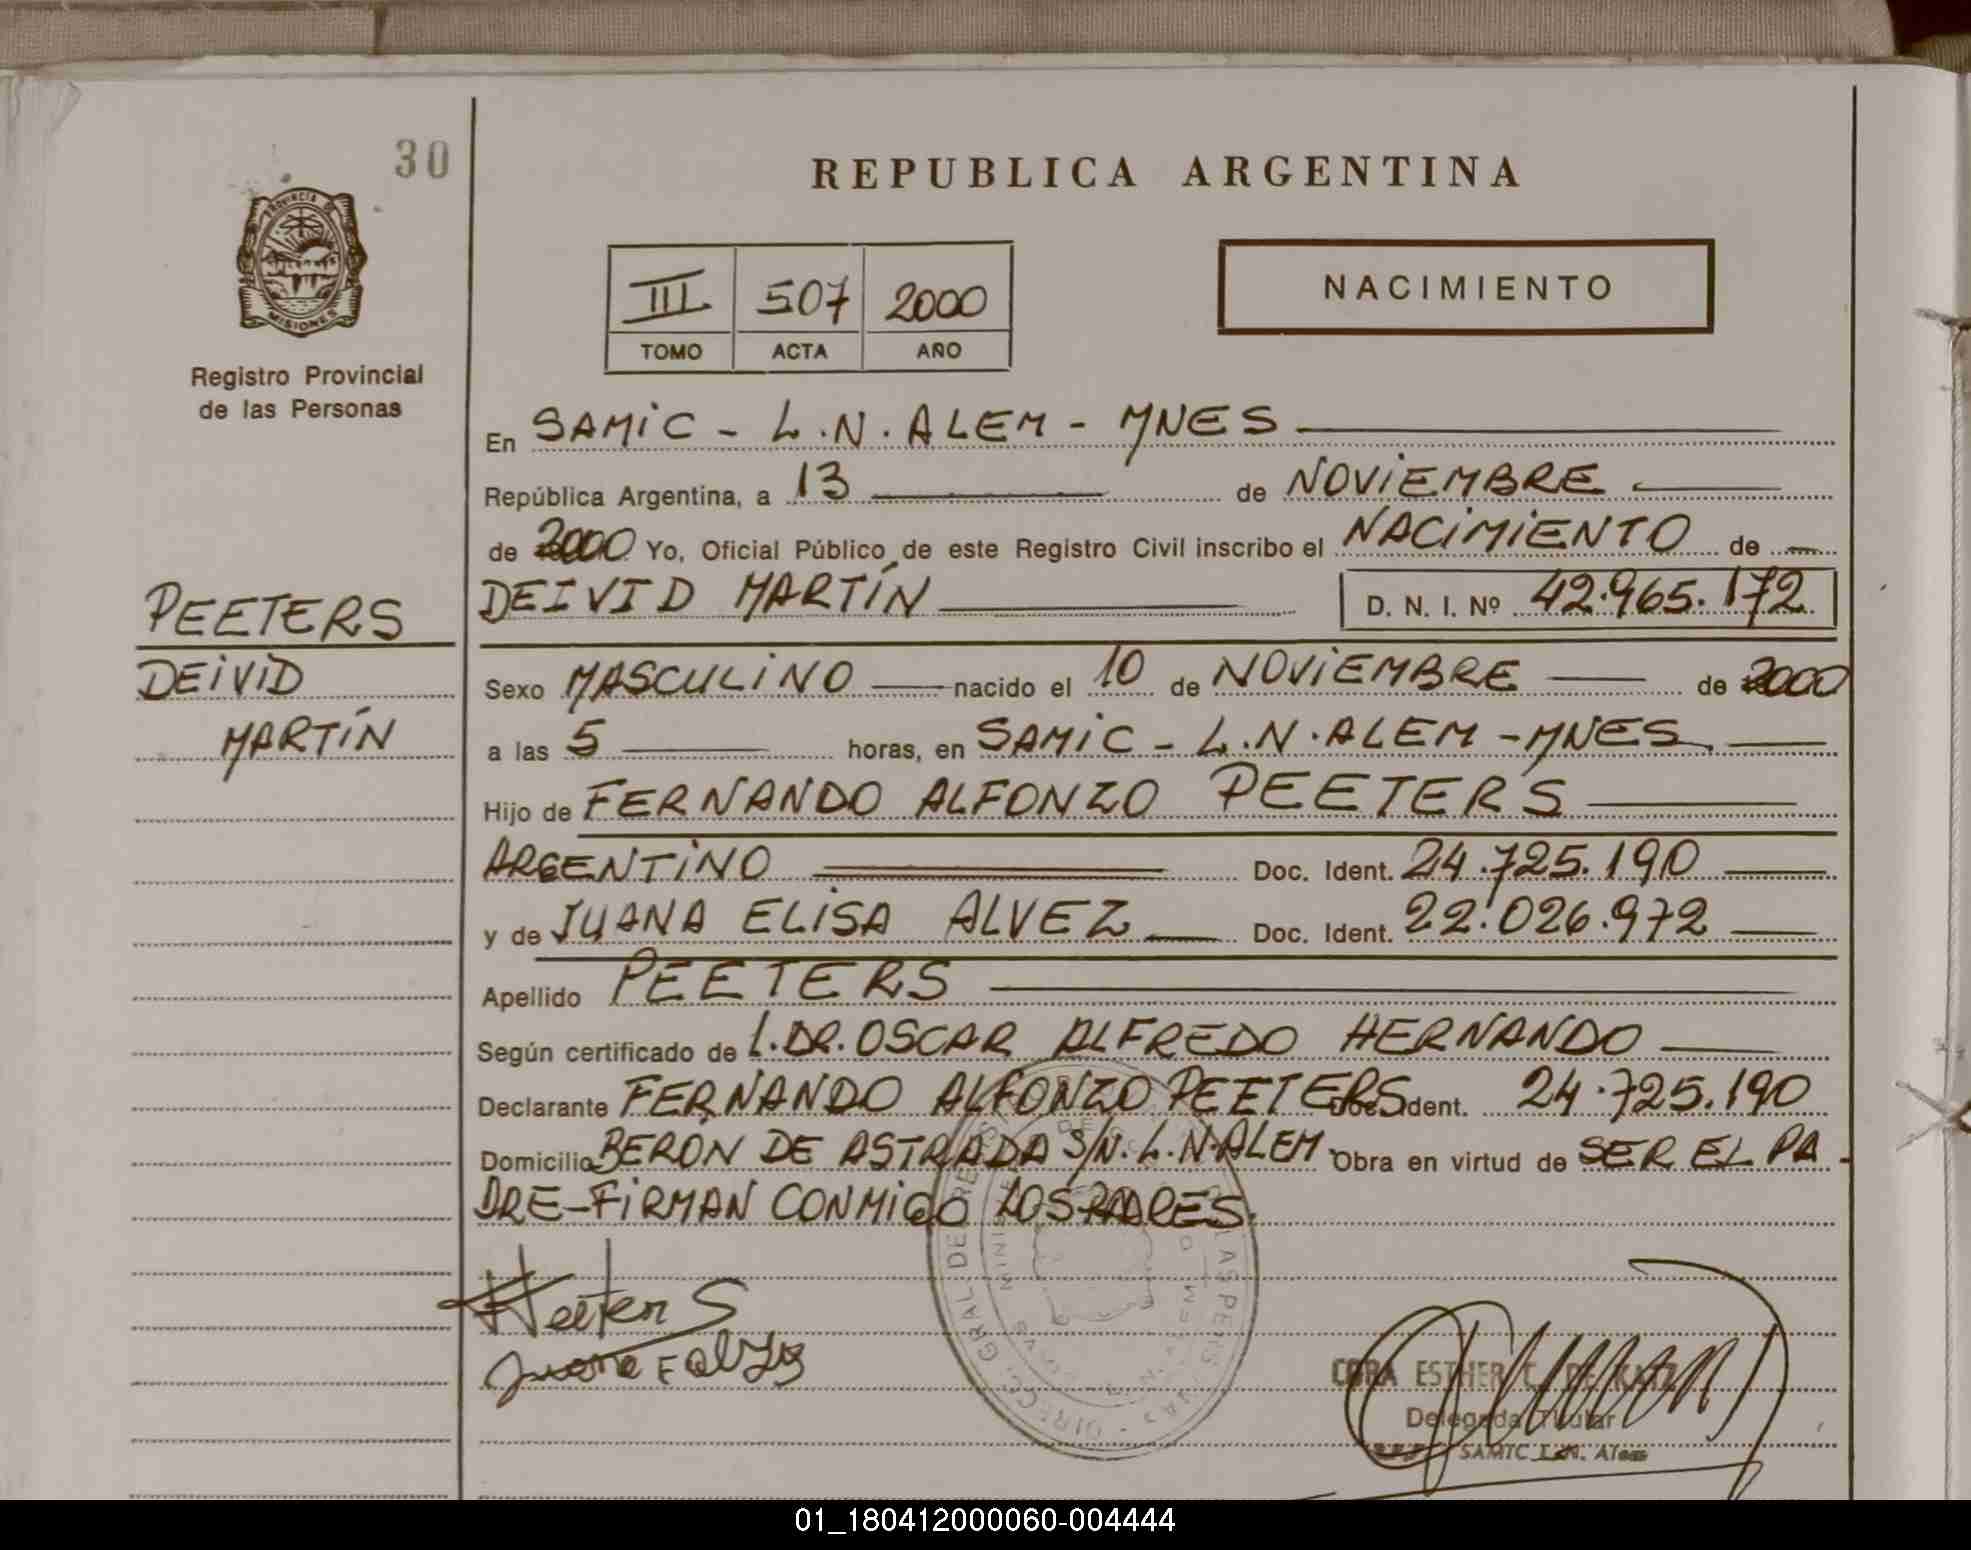 30
PROVINCIA DE
MISIONES
Registro Provincial
de las Personas
PEETERS
DEIVID
MARTÍN
REPUBLICA ARGENTINA
III 507 2000
TOMO ACTA AÑO
NACIMIENTO
En SAMIC - L.N. ALEM - MNES
República Argentina, a 13 de NOVIEMBRE
de 2000 Yo, Oficial Público de este Registro Civil inscribo el NACIMIENTO de
DEIVID MARTÍN D. N. I. Nº 42.965.172
Sexo MASCULINO nacido el 10 de NOVIEMBRE de 2000
a las 5 horas, en SAMIC - L.N. ALEM - MNES.
Hijo de FERNANDO ALFONZO PEETERS
ARGENTINO Doc. Ident. 24.725.190
y de JUANA ELISA ALVEZ Doc. Ident. 22.026.972
Apellido PEETERS
Según certificado de L. DR. OSCAR ALFREDO HERNANDO
Declarante FERNANDO ALFONZO PEETERS Doc. Ident. 24.725.190
Domicilio BERÓN DE ASTRADA S/N. L.N. ALEM. Obra en virtud de SER EL PA-
DRE-FIRMAN CONMIGO LOS PADRES.
Peeters
Juana E alvez
CORA ESTHER C. DE KATZ
Delegada Titular
SAMIC L.N. Alem
01_180412000060-004444